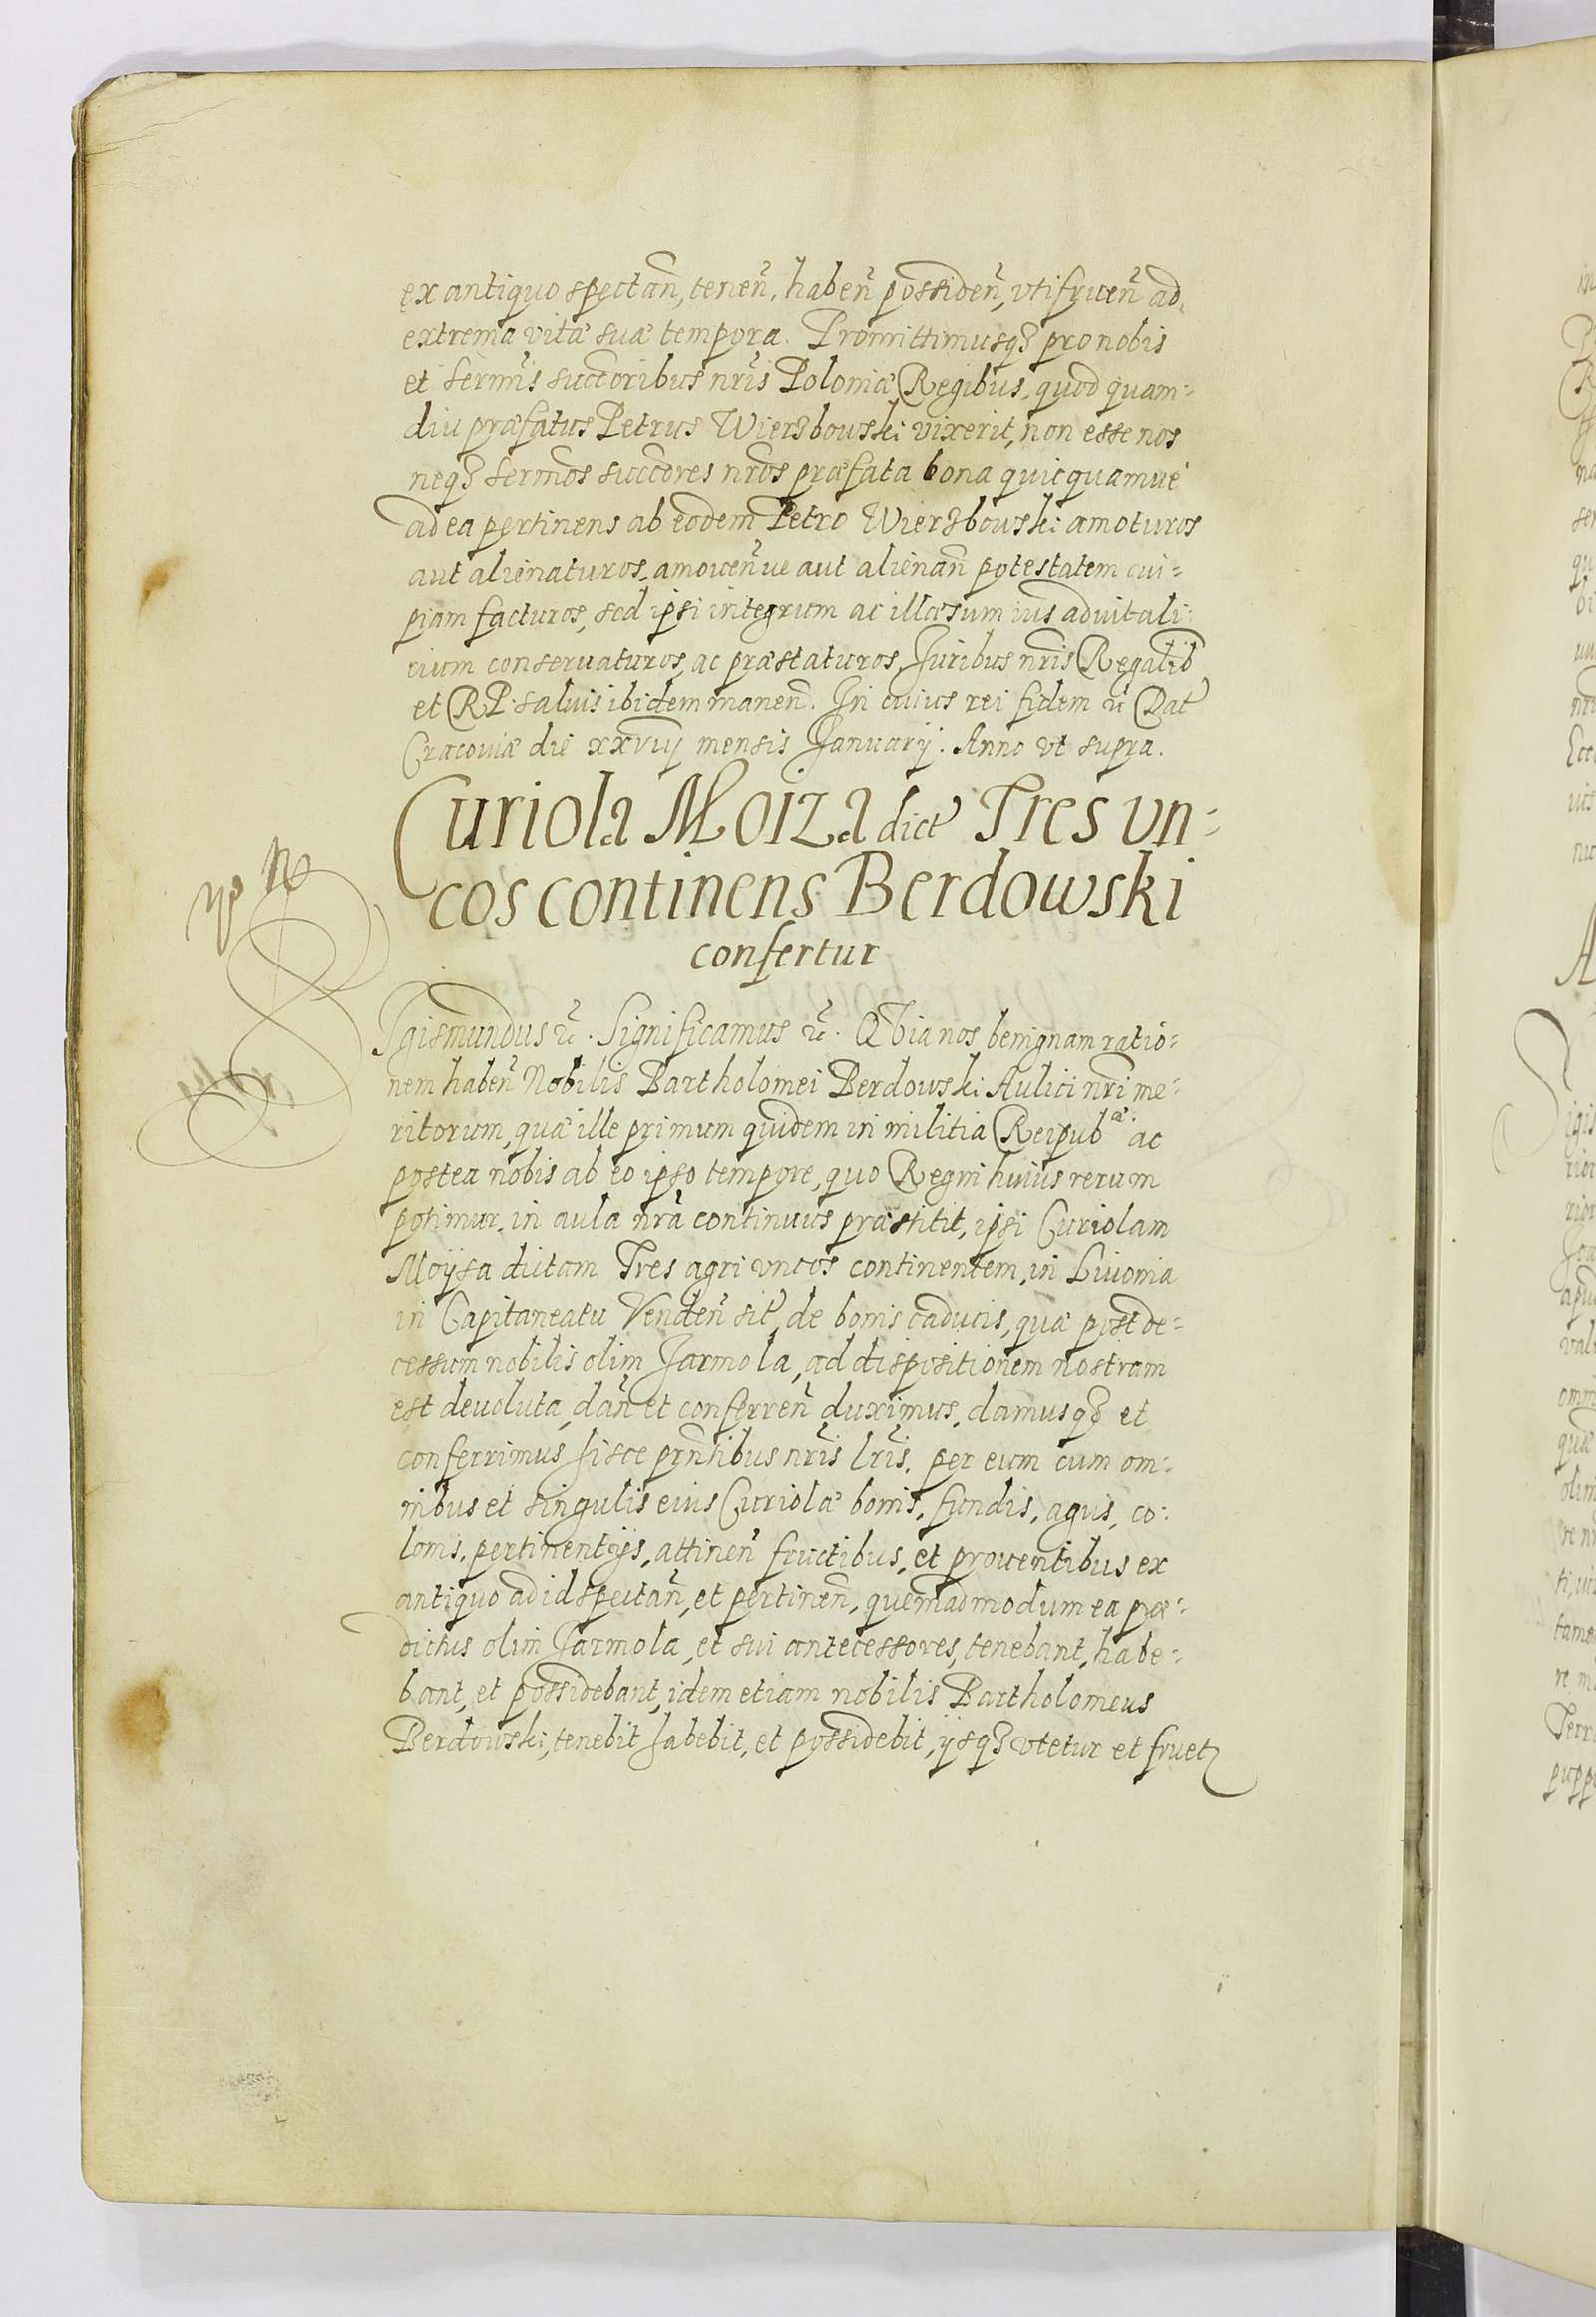 ex antiquo spectañ, teneñ, habeñ possideñ, vtifrueñ ad
extrema vitæ suæ tempora. Promittimusq3 pro nobis
et Sermis succoribus nris Poloniæ Regibus, quod quam=
diu præfatus Petrus Wierzbowski vixerit, non esse nos
neq3 sermos succores nros præfata bona quicquamue
ad ea pertinens ab eodem Petro Wierzbowski amoturos
aut alienaturos, amoueñue aut alienañ potestatem cui=
piam facturos, sed ipsi integrum ac illæsum ius aduitali=
tium conseruaturos, ac præstaturos, Juribus nris Regalib
et RP. saluis ibidem maneñ. In cuius rei fidem etc Dat
Cracouiæ die xxviij mensis Januarij. Anno vt supra.
Curiola Moiza dict Tres vn=
cos continens Berdowski
confertur
Sigismundus etc. Significamus etc. Quia nos benignam ratio=
nem habeñ Nobilis Bartholomei Berdowski Aulici nri me=
ritorum, quæ ille primum quidem in militia Reipub æ. ac
postea nobis ab eo ipso tempore, quo Regni huius rerum
potimur, in aula nra continuus præstitit, ipsi Curiolam
Moysa dictam Tres agri vncos continentem, in Liuonia
in Capitaneatu Vendeñ sit, de bonis caducis, quæ post de=
cessum nobilis olim Jarmola, ad dispositionem nostram
est deuoluta, dañ et conferreñ duximus, damusq3 et
conferrimus hisce prntibus nris lris. per eum cum om=
nibus et singulis eius Curiolæ bonis, fundis, agris, co=
lonis, pertinentijs, attineñ fructibus, et prouentibus ex
antiquo ad id spectañ, et pertineñ, quemadmodum ea præ=
dictus olim Jarmola, et sui antecessores, tenebant, habe=
bant, et possidebant, idem etiam nobilis Bartholomeus
Berdowski, tenebit habebit, et possidebit, ijsq3 vtetur et fruet